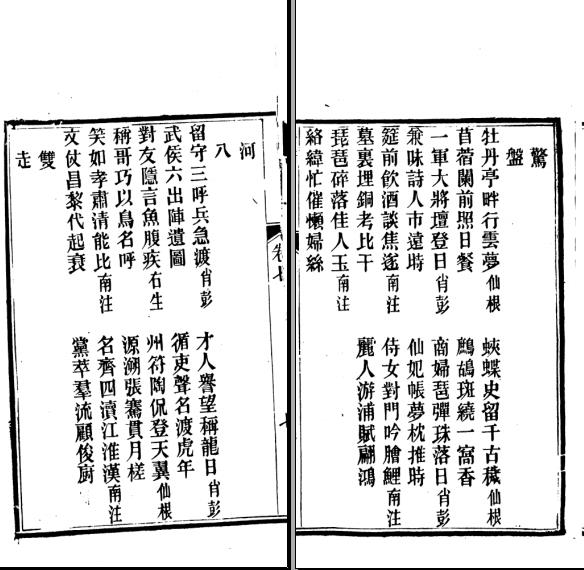 驚
盤
牡丹亭畔行雲夢仙根　蛺蝶史留千古穢仙根
苜蓿闌前照日餐　鷓鴣斑繞一窩香
一軍大將壇登日肖彭　商婦琶彈珠落日肖彭
兼味詩人市遠時　仙妃帳夢枕推時
筵前飲酒談焦遂南注　侍女對門吟膾鯉南注
墓裏埋銅考比干　麗人游浦賦翩鴻
琵琶碎落佳人玉南注
絡緯忙催懶婦絲
卷七
河
八
留守三呼兵急渡肖彭　才人譽望稱龍日肖彭
武侯六出陣遺圖　循吏聲名渡虎年
對友隱言魚腹疾右生　州符陶侃登天翼仙根
稱哥巧以鳥名呼　源溯張騫貫月槎
笑如孝肅清能比南注　名齊四瀆江淮漢南注
文仗昌黎代起衰　黨萃羣流顧俊廚
雙
走